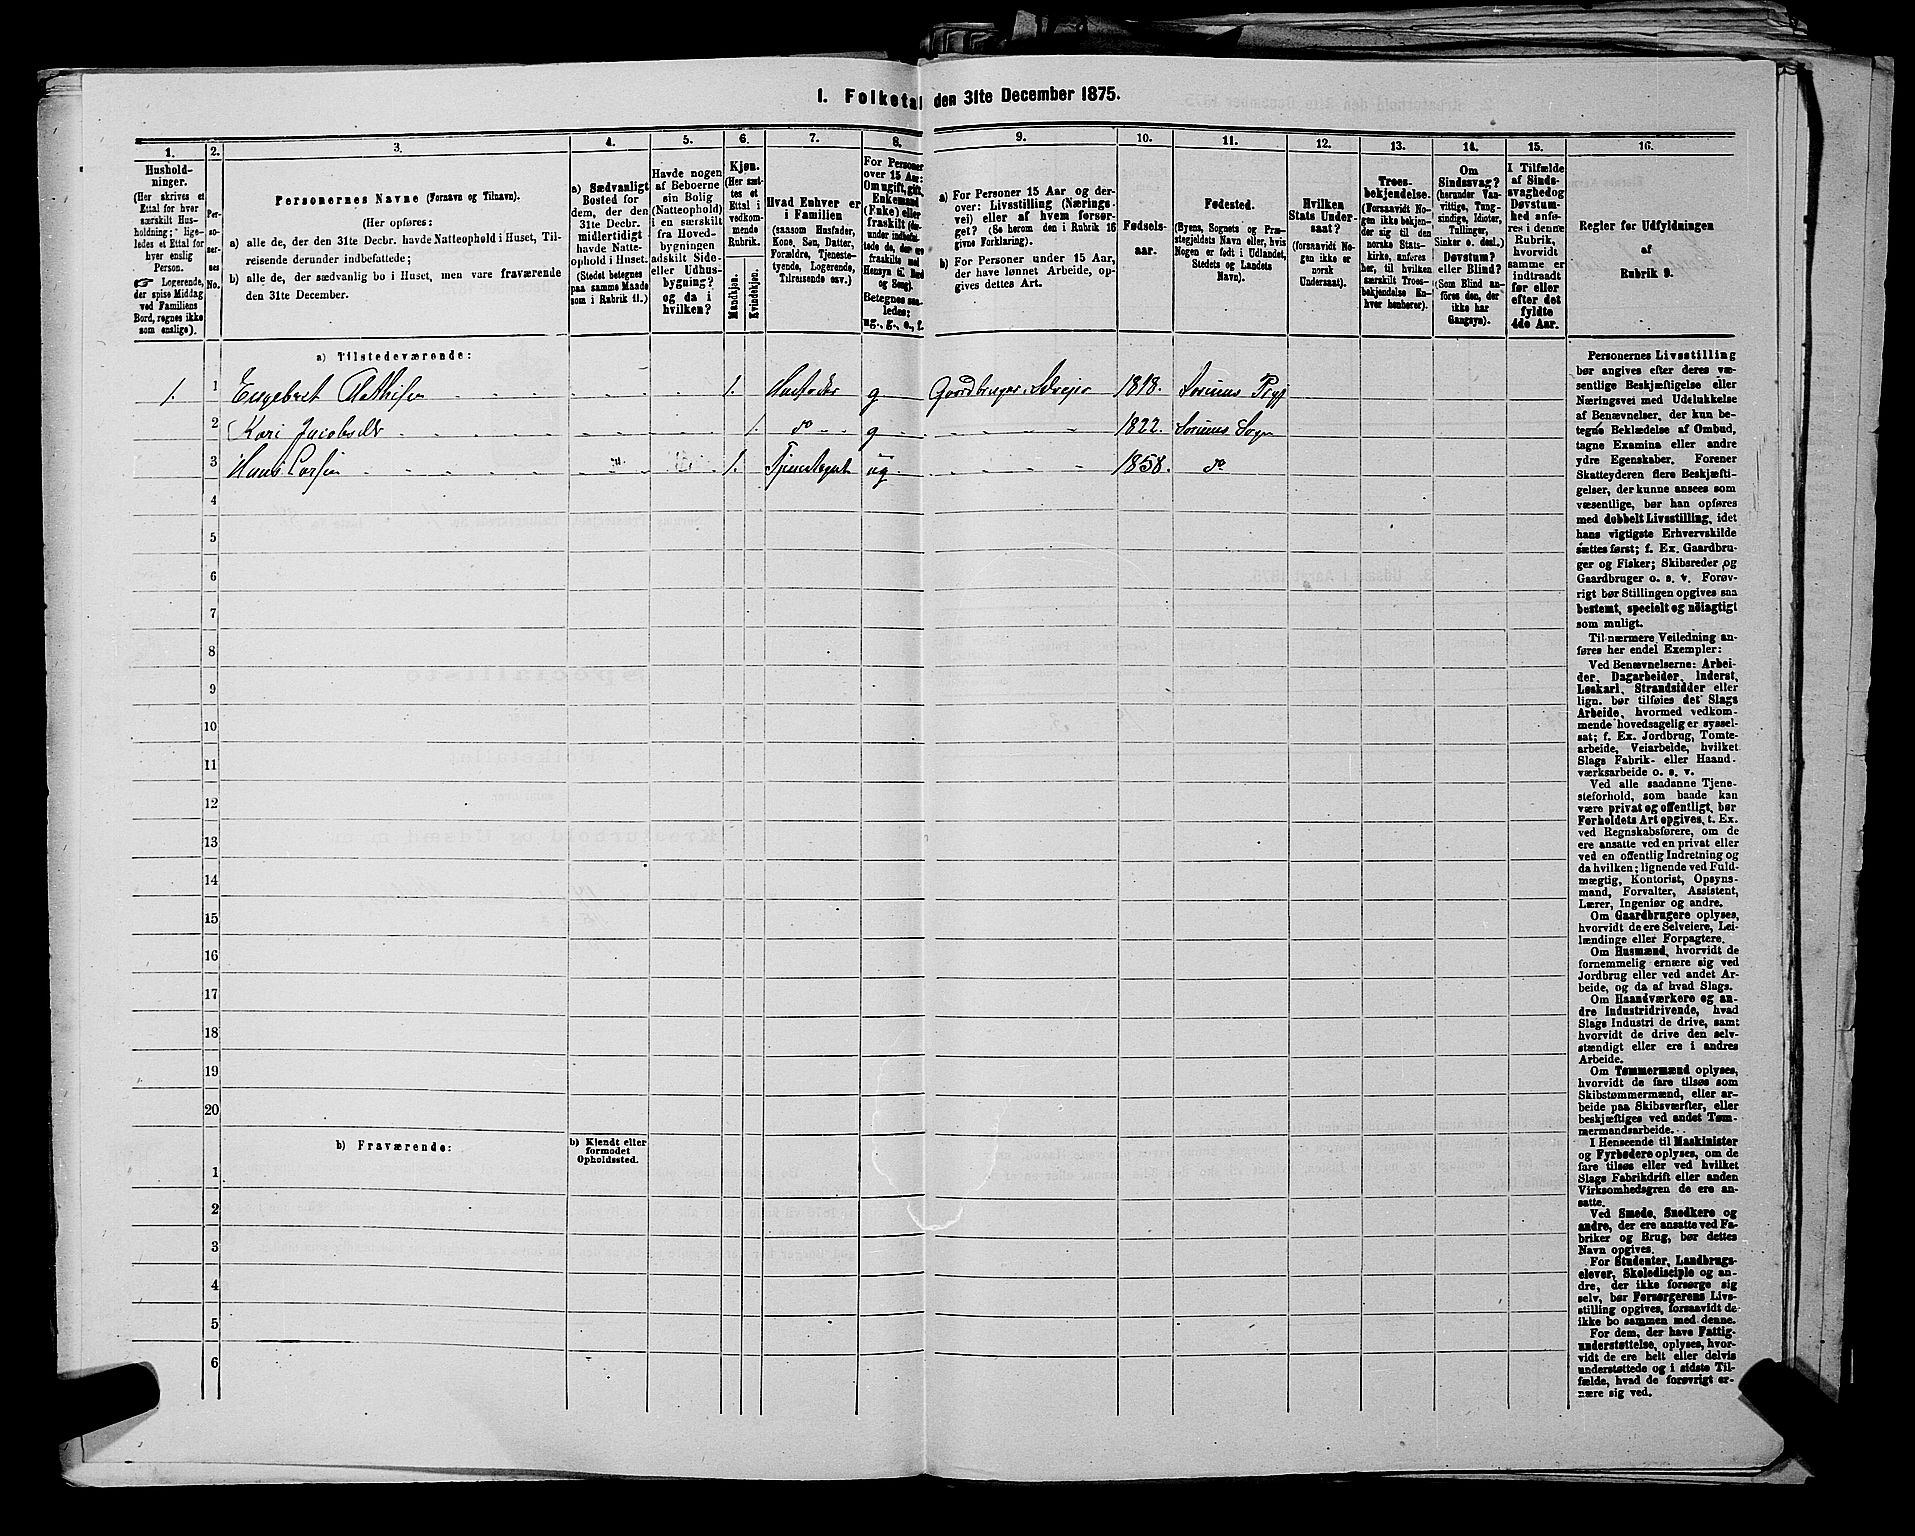 1. Folketal den 31te December 1875.
1.
2.
3.
4.
5.
6.
7.
8.
9.
10.
11.
12.
13.
14.
15.
16.
Hushold-
ninger.
(Her skrives et
Ettal for hver
særskilt Hus-
holdning; lige-
ledes et Ettal for
hver enslig
Person.
Logerende,
der spise Middag
ved Familiens
Bord, regnes ikke
som enslige).
Per-
so-
ner-
nes
No.
Personernes Navne (Fornavn og Tilnavn).
(Her opføres:
a) alle de, der den 31te Decbr. havde Natteophold i Huset, Til-
reisende derunder indbefattede;
b) alle de, der sædvanlig bo i Huset, men vare fraværende
den 31te December.
a) Sædvanligt
Bosted for
dem, der den
31te Decbr.
midlertidigt
havde Natte-
ophold i Huset.
(Stedet betegnes
paa samme Maade
som i Rubrik 11.)
Havde nogen
af Beboerne
sin Bolig
(Natteophold)
i en særskilt
fra Hoved-
bygningen
adskilt Side-
eller Udhus-
bygning?
og da i
hvilken?
Kjøn.
(Her sæt-
tes et
Ettal i
vedkom-
mende
Rubrik.
Mandkjøn.
Kvindekjøn.
Hvad Enhver er
i Familien
(saasom Husfader,
Kone, Søn, Datter,
Forældre, Tjeneste-
tyende, Logerende,
Tilreisende osv.)
For Personer
over 15 Aar:
Om ugift, gift,
Enkemand
(Enke) eller
fraskilt (der-
under indbefat-
tede de, der ere
fraskilte med
Hensyn til Bord
og Seng).
Betegnes saa-
ledes:
ug., g., e., f.
a) For Personer 15 Aar og der-
over: Livsstilling (Nærings-
vei) eller af hvem forsør-
get? (Se herom den i Rubrik 16
givne Forklaring).
b) For Personer under 15 Aar,
der have lønnet Arbeide, op-
gives dettes Art.
Fødsels-
aar.
Fødested.
(Byens, Sognets og Præ-
stegjeldets Navn eller, hvis
Nogen er født i Udlandet,
Stedets og Landets
Navn).
Hvilken
Stats Under-
saat?
(forsaavidt No-
gen ikke er
norsk
Undersaat).
Troes-
bekjendelse.
(Forsaavidt No-
gen ikke bekjen-
der sig til den
norske Stats-
kirke, anføres
her, til hvilken
særskilt Troes-
bekjendelse En-
hver henhører).
Om
Sindssvag?
(herunder Van-
vittige, Tung-
sindige, Idioter,
Tullinger,
Sinker o. desl.)
Døvstum?
eller Blind?
(Som Blind an-
føres den, der
ikke har
Gangsyn).
I Tilfælde
af Sinds-
svaghed og
Døvstum-
hed anfø-
res i denne
Rubrik,
hvorvidt
samme er
indtraadt
før eller
efter det
fyldte
4de Aar.
Regler for Udfyldningen
af
Rubrik 9.
a) Tilstedeværende:
1. 1 Engebret Mathisen 1. Husfader g Gaardbruger, Selveier 1818. Sørums Prgj
2 Kari Jacobsdtr 1. do g 1822. Sørums Sogn
3 Hans Larsen 1. Tjenestegut ug 1858. do
4
5
6
7
8
9
10
11
12
13
14
15
16
17
18
19
20
b) Fraværende:
b) Kjendt eller
formodet
Opholdssted.
1
2
3
4
5
6
Personernes Livsstilling
bør angives efter deres væ-
sentlige Beskjæftigelse eller
Næringsvei med Udelukkelse
af Benævnelser, der kun be-
tegne Beklædelse af Ombud,
tagne Examina eller andre
ydre Egenskaber. Forener
Skatteyderen flere Beskjæfti-
gelser, der kunne ansees som
væsentlige, bør han opføres
med dobbelt Livsstilling, idet
hans vigtigste Erhvervskilde
sættes først; f. Ex. Gaardbru-
ger og Fisker; Skibsreder og
Gaardbruger o. s. v. Forøv-
rigt bør Stillingen opgives saa
bestemt, specielt og nøiagtigt
som muligt.
Til nærmere Veiledning an-
føres her endel Exempler:
Ved Benævnelserne: Arbei-
der, Dagarbeider, Inderst,
Løskarl, Strandsidder eller
lign. bør tilføies det Slags
Arbeide, hvormed vedkom-
mende hovedsagelig er syssel-
sat; f. Ex. Jordbrug, Tomte-
arbeide, Veiarbeide, hvilket
Slags Fabrik- eller Haand-
værksarbeide o. s. v.
Ved alle saadanne Tjene-
steforhold, som baade kan
være privat og offentligt, bør
Forholdets Art opgives, t. Ex.
ved Regnskabsførere, om de
ere ansatte ved en privat eller
ved en offentlig Indretning og
da hvilken; lignende ved Fuld-
mægtig, Kontorist, Opsyns-
mand, Forvalter, Assistent,
Lærer, Ingeniør og andre.
Om Gaardbrugere oplyses,
hvorvidt de ere Selveiere, Lei-
lændinge eller Forpagtere.
Om Husmænd, hvorvidt de
fornemmelig ernære sig ved
Jordbrug eller ved andet Ar-
beide, og da af hvad Slags.
Om Haandværkere og an-
dre Industridrivende, hvad
Slags Industri de drive, samt
hvorvidt de drive den selv-
stændigt eller ere i andres
Arbeide.
Om Tømmermænd oplyses,
hvorvidt de fare tilsøs som
Skibstømmermænd, eller ar-
beide paa Skibsværfter, eller
beskjæftiges ved andet Tøm-
mermandsarbeide.
I Henseende til Maskinister
og Fyrbødere oplyses, om de
fare tilsøs eller ved hvilket
Slags Fabrikdrift eller anden
Virksomhedsgren de ere an-
satte.
Ved Smede, Snedkere og
andre, der ere ansatte ved Fa-
briker og Brug, bør dettes
Navn opgives.
For Studenter, Landbrugs-
elever, Skoledisciple og an-
dre, der ikke forsørge sig
selv, bør Forsørgerens Livs-
stilling opgives, forsaavidt de
ikke bo sammen med denne.
For dem, der have Fattig-
understøttelse, oplyses, hvor-
vidt de ere helt eller delvis
understøttede og i sidste Til-
fælde, hvad de forøvrigt er-
nære sig ved.